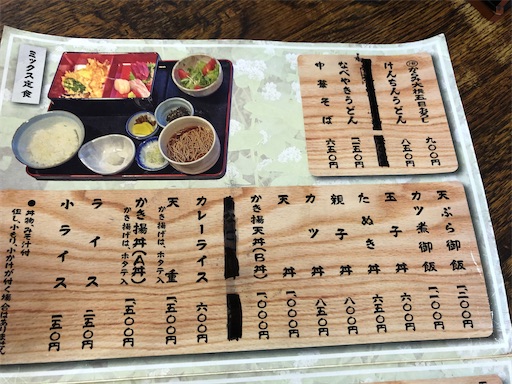 ミックス定食
からみ大根五目おろし 九〇〇円
けんちんうどん 八五〇円
なべやきうどん 一二五〇円
中華そば 六五〇円
天ぷら御飯 一二〇〇円
カツ煮御飯 一〇〇〇円
玉子丼 六〇〇円
たぬき丼 六五〇円
親子丼 七五〇円
カツ丼 八五〇円
天丼 一一〇〇円
かき揚天丼(B丼) 一〇〇〇円
カレーライス 六〇〇円
天重 一五〇〇円
かき揚げは、ホタテ入
かき揚丼(A丼) 一二〇〇円
かき揚げは、ホタテ入
ライス 二五〇円
小ライス 一五〇円
●丼物みそ汁付
但し、小もり、小かけが付く場合